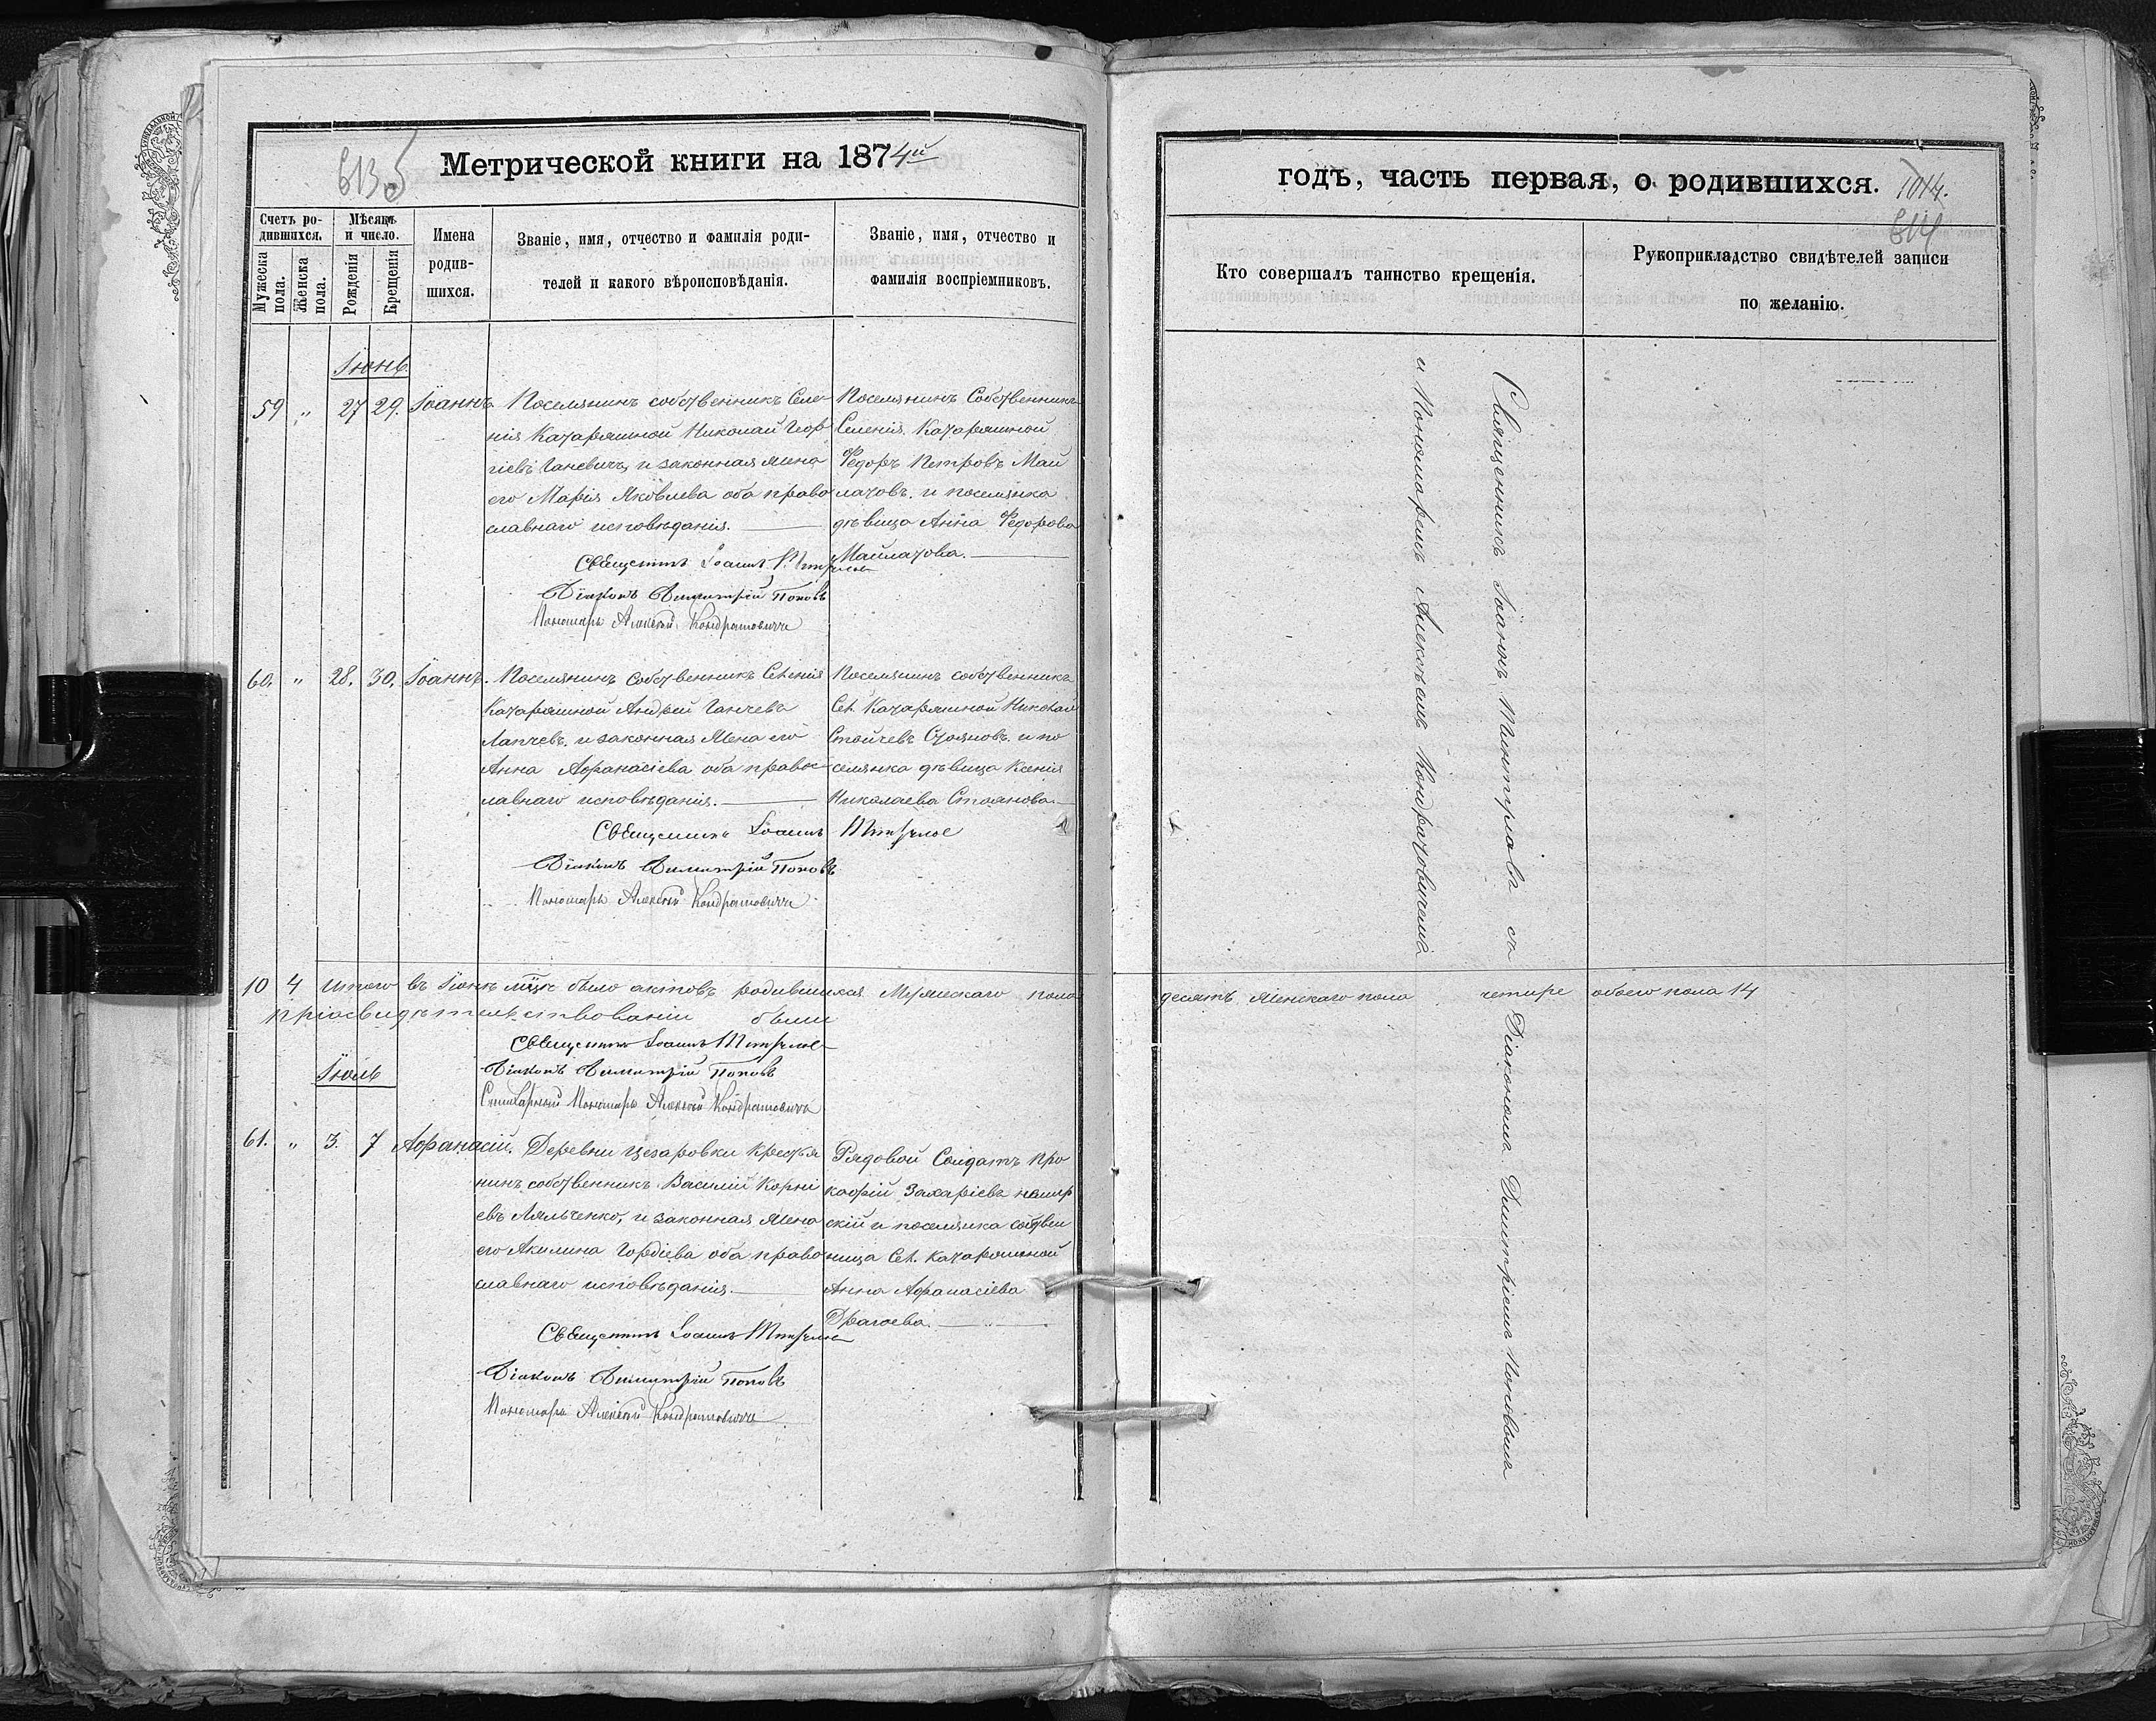 Метрической книги на 1874й
Счетъ ро-
дившихся.
Мужеска
пола.
Женска
пола.
Мѣсяцъ
и число.
Рожденія
Крещенія
Имена
родив-
шихся.
Званіе, имя, отчество и фамилія роди-
телей и какого вѣроисповѣданія.
Званіе, имя, отчество и
фамилія воспріемниковъ.
Іюнь.
59 " 27 29. Іоаннъ
Поселянинъ собственникъ Селе-
нія Катаржиной Николай Геор
гіевъ Ганевичъ, и законная жена
его Марія Яковлева оба право
славнаго исповѣданія.
Поселянинъ Собственникъ
Селенія Катаржиной
Федоръ Петровъ Май
латовъ. и поселянка
дѣвица Анна Федорова
Майлатова.
Священникъ Іоаннъ
Діаконъ Димитрій Поповъ
Пономарь Алексѣй Кондратовичъ
60. " 28. 30. Іоаннъ.
Поселянинъ Собственникъ Селенія
Катаржиной Андрей Ганчевъ
Лапчевъ. и законная жена его
Анна Афанасіева оба правос
лавнаго исповѣданія.
Поселянинъ собственникъ
Сел. Катаржиной Николай
Стойчевъ Стояновъ. и по
селянка дѣвица Ксенія
Николаева Стоянова
Священникъ Іоаннъ
Діаконъ Димитрій Поповъ
Пономарь Алексѣй Кондратовичъ
10 4 Итого въ Іюнѣ м-цѣ было актовъ родившихся Мужескаго пола
присвидѣтельствованіи были
Священникъ Іоаннъ
Діаконъ Димитрій Поповъ
Стихарный Пономарь Алексѣй Кондратовичъ
Іюль
61. " 3. 7 Афанасій.
Деревни Цезаровки Крестья
нинъ собственникъ Василій Корні
евъ Ляльченко, и законная жена
его Акилина Гордіева оба право
славнаго исповѣданія.
Рядовой Солдатъ Про
кофій Захаріевъ
скій и поселянка собствен
ница Сел. Катаржиной
Анна Афанасіева
Драгоева.
Священникъ Іоаннъ
Діаконъ Димитрій Поповъ
Пономарь Алексѣй Кондратовичъ
годъ, часть первая, о родившихся. 1014.
614
Кто совершалъ таинство крещенія.
Рукоприкладство свидѣтелей записи
по желанію.
Священникъ Іоаннъ съ
Діакономъ Димитріемъ Поповымъ
и Пономаремъ Алексѣемъ Кондратовичемъ
десять Женскаго пола четыре обоего пола 14